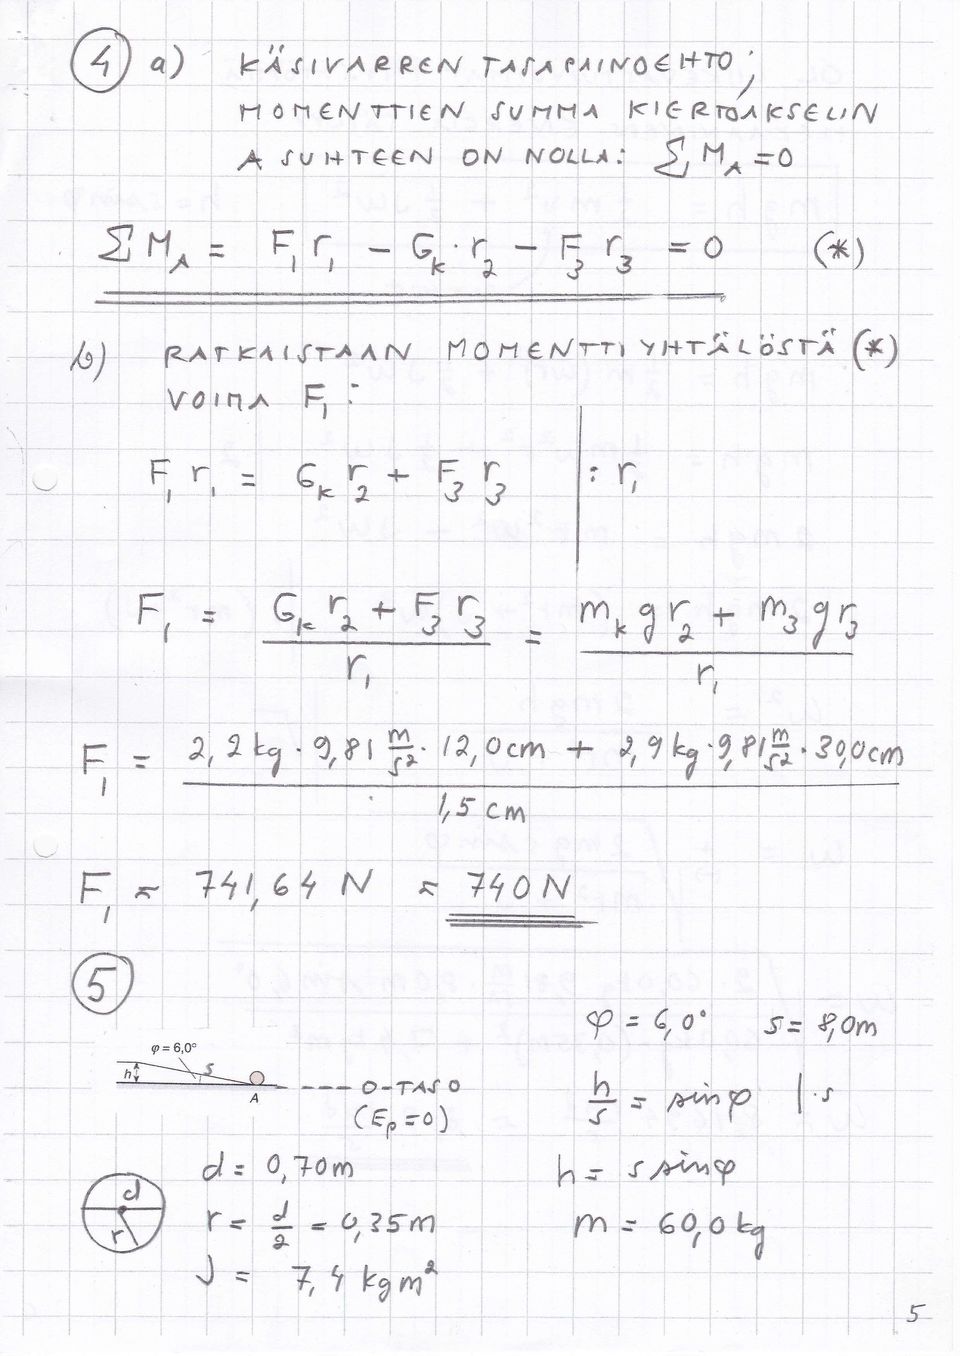 4 a) KÄSIVARREN TASAPAINOEHTO;
MOMENTTIEN SUMMA KIERTOAKSELIN
A SUHTEEN ON NOLLA: ∑ M_A = 0
∑ M_A = F_1 r_1 − G_k · r_2 − F_3 r_3 = 0 (*)
b) RATKAISTAAN MOMENTTIYHTÄLÖSTÄ (*)
VOIMA F_1:
F_1 r_1 = G_k r_2 + F_3 r_3 | : r_1
F_1 = (G_k r_2 + F_3 r_3) / r_1 = (m_k g r_2 + m_3 g r_3) / r_1
F_1 = (2,2 kg · 9,81 m/s² · 12,0 cm + 2,9 kg · 9,81 m/s² · 30,0 cm) / 1,5 cm
F_1 = 741,64 N ≈ 740 N
5
φ = 6,0° s = 8,0 m
φ = 6,0°
h s
A
0-TASO
(E_p = 0)
h/s = sin φ | · s
d = 0,70 m
h = s sin φ
d
r
r = d/2 = 0,35 m
m = 60,0 kg
J = 7,4 kgm²
5